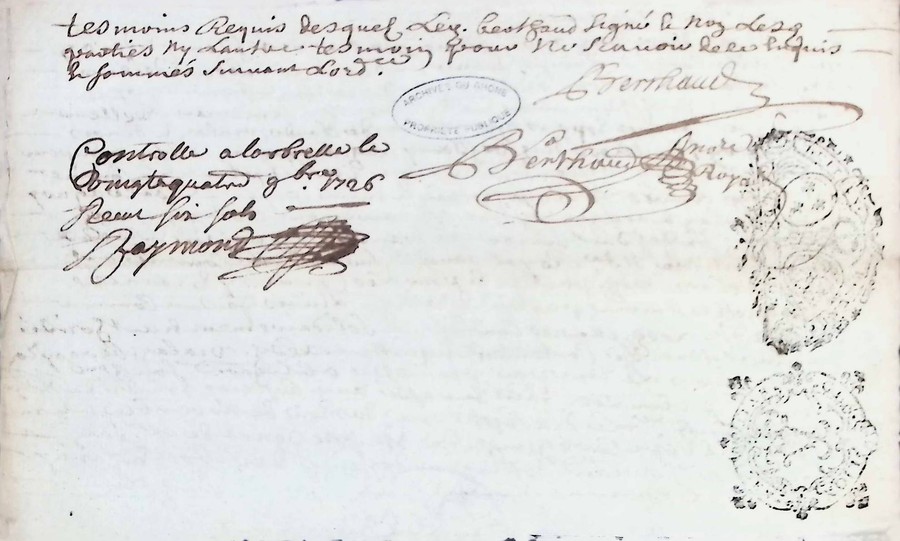 tesmoins Requis desquel Ley. berthaud signé le Noy Lesd
parties Ny Lautre tesmoin pour Ne scavoir de ce Enquis
& sommés suivant Lord.ce
Berthaud
ARCHIVES DU RHONE
PROPRIÉTÉ PUBLIQUE
Berthaud
Royal
Controlle a larbresle le
Vingtquatre 9bre 1726
Receu six sols
Raymond